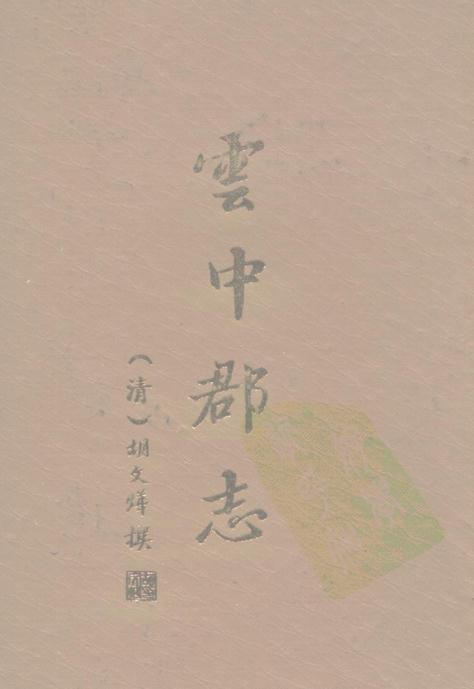 雲中郡志
（清）胡文燁撰